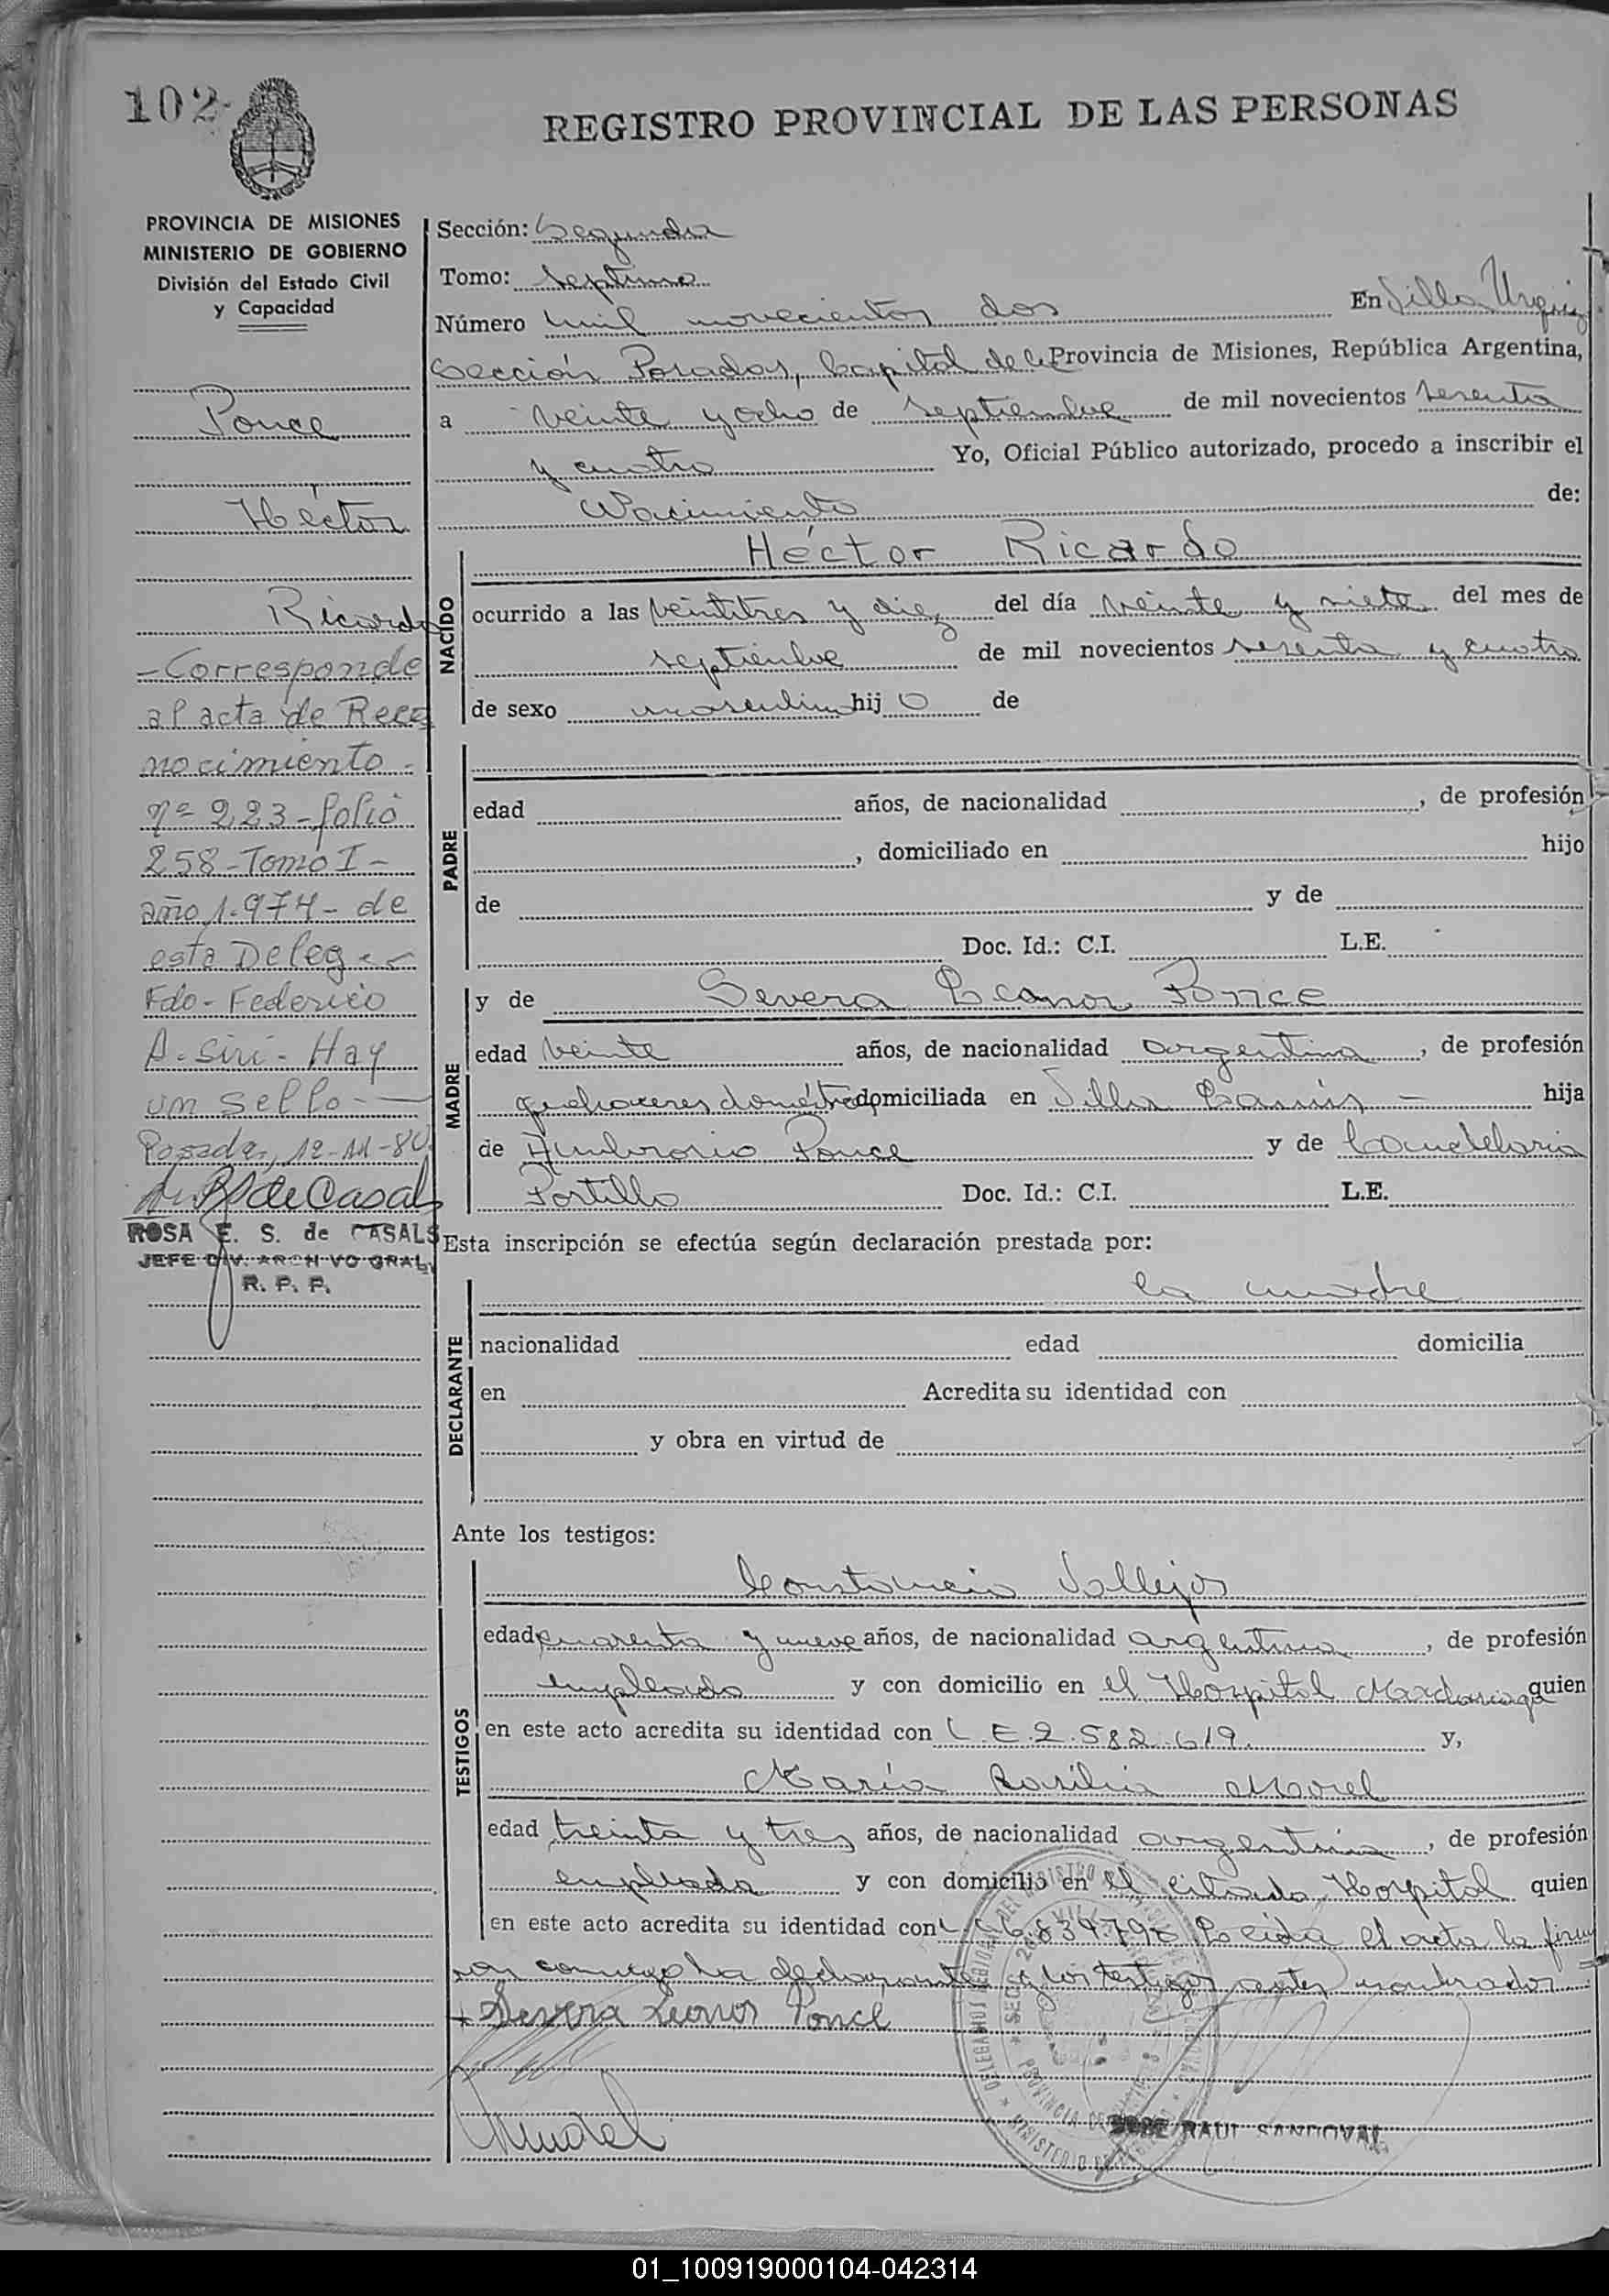 102
REGISTRO PROVINCIAL DE LAS PERSONAS
PROVINCIA DE MISIONES
MINISTERIO DE GOBIERNO
División del Estado Civil
y Capacidad
Ponce
Héctor
Ricardo
-Corresponde
al acta de Reco
nocimiento-
nº 223-folio
258-Tomo I-
año 1.974- de
esta Deleg--
Fdo-Federico
A. Siri- Hay
un sello-
Posadas, 12-11-80
de Casals
ROSA E. S. de CASALS
JEFE DIV. ARCHIVO GRAL.
R. P. P.
Sección: Segunda
Tomo: Septimo
Número mil novecientos dos En Villa Urquiz
Sección Posadas, Capital de la Provincia de Misiones, República Argentina,
a veinte y ocho de septiembre de mil novecientos sesenta
y cuatro Yo, Oficial Público autorizado, procedo a inscribir el
Nacimiento de:
NACIDO
Héctor Ricardo
ocurrido a las veintitres y diez del día veinte y siete del mes de
septiembre de mil novecientos sesenta y cuatro
de sexo masculino hijo de
PADRE
edad años, de nacionalidad , de profesión
, domiciliado en hijo
de y de
Doc. Id.: C.I. L.E.
MADRE
y de Severa Leonor Ponce
edad veinte años, de nacionalidad argentina , de profesión
quehaceres domésticos domiciliada en Villa Lanús - hija
de Ambrosio Ponce y de Candelaria
Portillo Doc. Id.: C.I. L.E.
Esta inscripción se efectúa según declaración prestada por:
DECLARANTE
la madre
nacionalidad edad domicilia
en Acredita su identidad con
y obra en virtud de
Ante los testigos:
TESTIGOS
Constancio Vallejos
edad cuarenta y nueve años, de nacionalidad argentina , de profesión
empleado y con domicilio en el Hospital Madariaga quien
en este acto acredita su identidad con L.E.2.582.619. y,
María Basilia Morel
edad treinta y tres años, de nacionalidad argentina , de profesión
empleada y con domicilio en el citado Hospital quien
en este acto acredita su identidad con 6.839.798 Leída el acta la firman
conmigo la declarante y los testigos antes nombrados
+ Severa Leonor Ponce
JOSE RAUL SANDOVAL
01_100919000104-042314